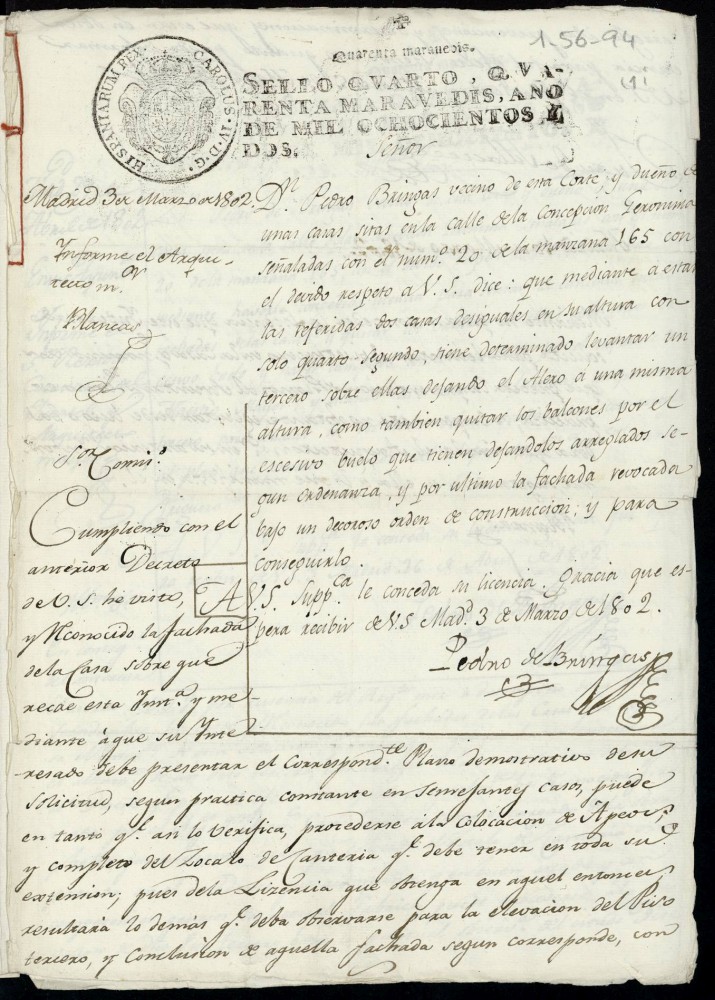 1-56-94
Quarenta maravedis.
HISPANIARUM REX. CAROLUS. IV. D. G.
SELLO QVARTO, QVA-
RENTA MARAVEDIS, AÑO
DE MIL OCHOCIENTOS Y
DOS.
Señor
Dn. Pedro Bringas vecino de esta Corte, y dueño de
unas casas sitas en la calle de la Concepcion Geronima
señaladas con el numº. 20 de la manzana 165 con
el devido respeto a V. S. dice: que mediante a estar
las referidas dos casas desiguales en su altura con
solo quarto segundo, tiene determinado levantar un
tercero sobre ellas dejando el Alero a una misma
altura, como tambien quitar los balcones por el
escesivo buelo que tienen dejandolos arreglados se-
gun ordenanza, y por ultimo la fachada revocada
bajo un decoroso orden de construccion; y para
conseguirlo.
A V.S. Suppca. le conceda su licencia. Gracia que es-
pera recibir de V.S Madd. 3 de Marzo de 1802.
Pedro de Bringas
Madrid 3 de Marzo de 1802.
Informe el Arqui-
tecto mor.
Blancas
Sor. Comiso.
Cumpliendo con el
anterior Decreto
de V. S. he visto,
y reconocido la fachada
de la Casa sobre que
recae esta Ynsta. y me-
diante à que su Ynte-
resado debe presentar el Correspondte. Plano demostrativo de su
solicitud, segun practica constante en semejantes casos, puede
en tanto qe. asi lo verifica, procederse à la Colocacion de Apeos,
y completo del Zocalo de Canteria qe. debe tener en toda su
extension; pues de la Lizencia que obtenga en aquel entonces,
resultarà lo demás qe. deba observarse para la elevacion del Piso
tercero, y Conclusion de aquella fachada segun corresponde, con